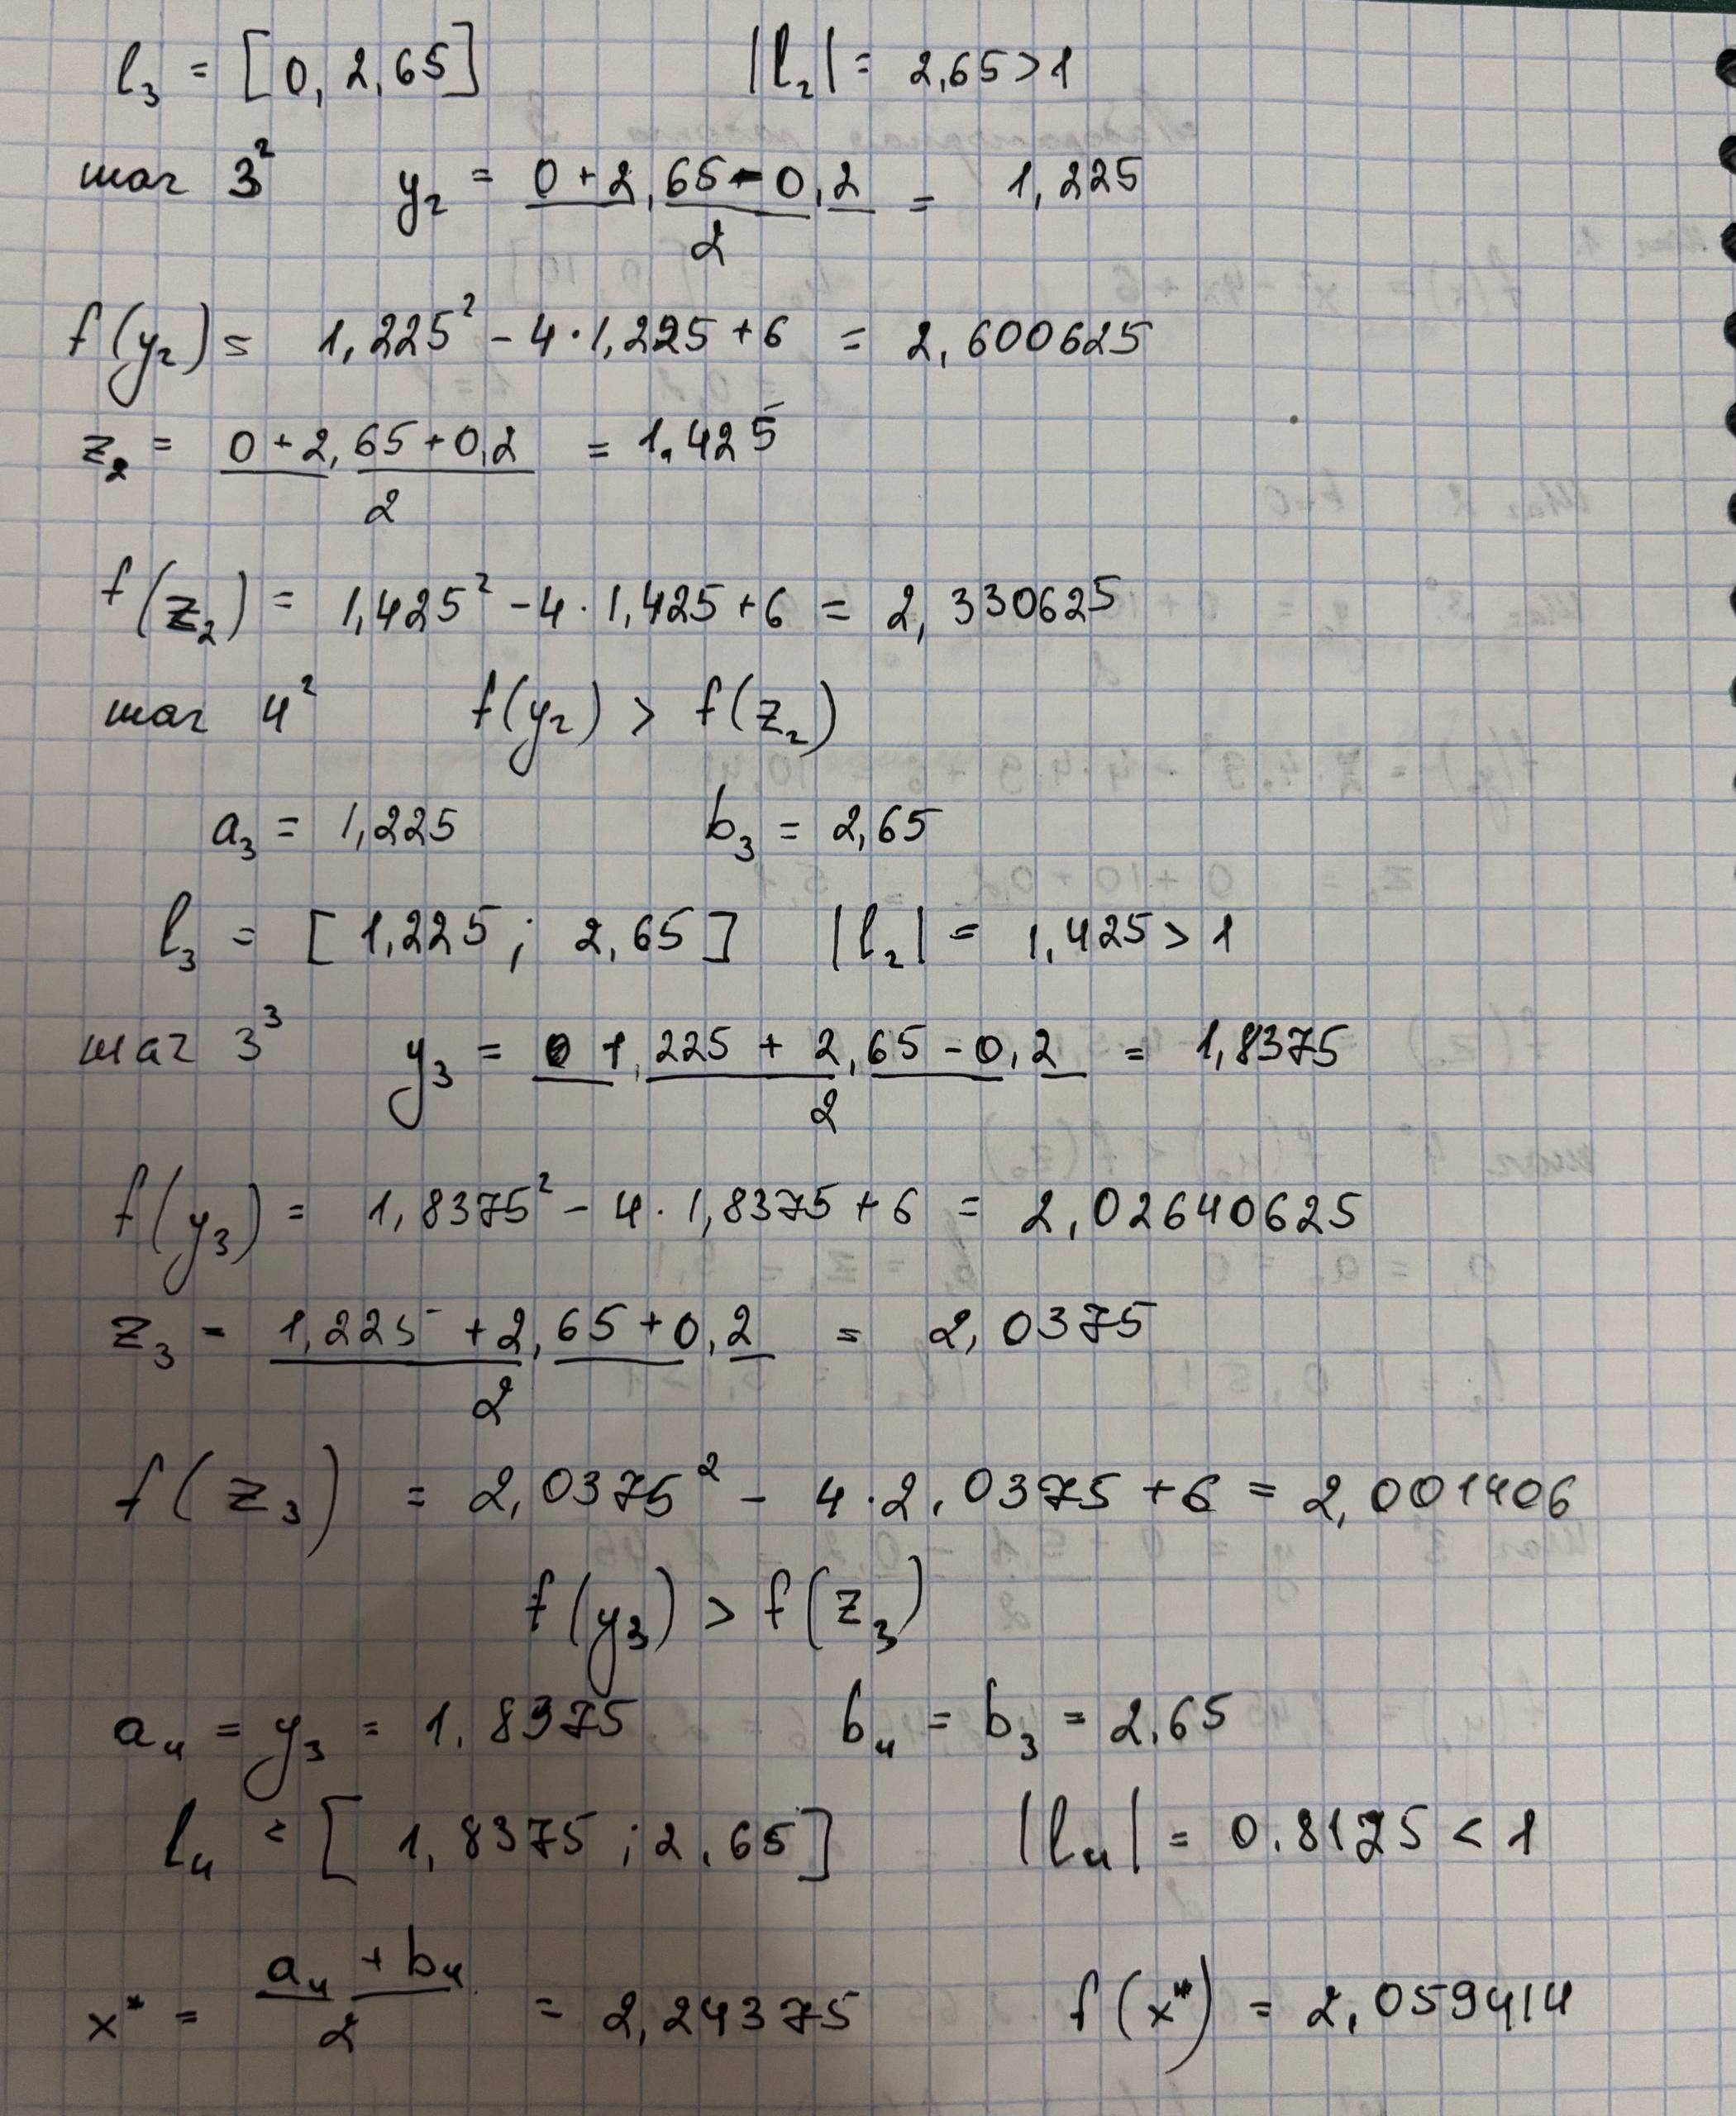 l₃ = [0, 2,65] |l₂| = 2,65 > 1
шаг 3² y₂ = (0 + 2,65 - 0,2)/2 = 1,225
f(y₂) = 1,225² - 4·1,225 + 6 = 2,600625
z₂ = (0 + 2,65 + 0,2)/2 = 1.425
f(z₂) = 1,425² - 4·1,425 + 6 = 2,330625
шаг 4² f(y₂) > f(z₂)
a₃ = 1,225 b₃ = 2,65
l₃ = [1,225; 2,65] |l₂| = 1,425 > 1
шаг 3³ y₃ = (1,225 + 2,65 - 0,2)/2 = 1,8375
f(y₃) = 1,8375² - 4·1,8375 + 6 = 2,02640625
z₃ = (1,225 + 2,65 + 0,2)/2 = 2,0375
f(z₃) = 2,0375² - 4·2,0375 + 6 = 2,001406
f(y₃) > f(z₃)
a₄ = y₃ = 1.8375 b₄ = b₃ = 2.65
l₄ = [1,8375; 2.65] |l₄| = 0.8125 < 1
x* = (a₄ + b₄)/2 = 2,24375 f(x*) = 2,059414